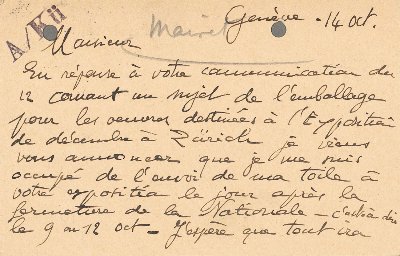 Genève - 14 oct.
A/Kü
Mairet
Monsieur
En réponse à votre communication du
12 courant au sujet de l'emballage
pour les oeuvres destinées à l'Exposition
de décembre à Zürich je viens
vous annoncer que je me suis
occupé de l'envoi de ma toile à
votre exposition le jour après la
fermeture de la Nationale - c'est à dire
le 9 ou 12 oct - J'espère que tout ira